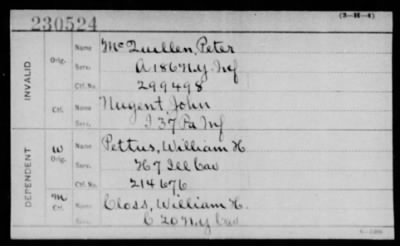 230524
(3-M-4)
INVALID
Orig. Name McQuillen, Peter
Serv. A 186 N.Y. Inf
Ctf. No. 299498
Ctf. Name Nugent, John
Serv. I 37 Pa Inf
DEPENDENT
W Orig. Name Pettus, William H
Serv. H 7 Ill Cav
Ctf. No. 214676
M Ctf. Name Closs, William H.
Serv. C 20 N.Y Cav